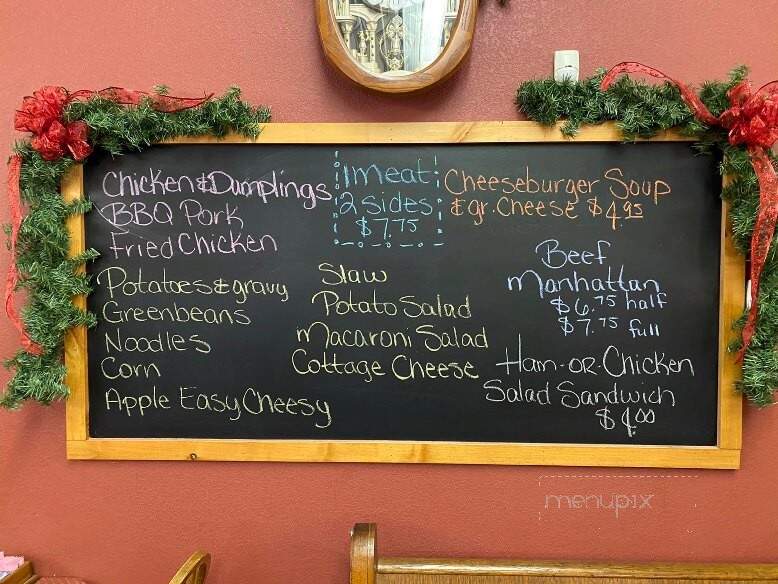 Chicken & Dumplings
BBQ Pork
Fried Chicken
1 meat
2 Sides
$7.75
Cheeseburger Soup
& gr. Cheese $4.95
Potatoes & gravy
Greenbeans
Noodles
Corn
Apple Easy Cheesy
Slaw
Potato Salad
Macaroni Salad
Cottage Cheese
Beef
Manhattan
$6.75 half
$7.75 full
Ham-OR-Chicken
Salad Sandwich
$4.00
menupix